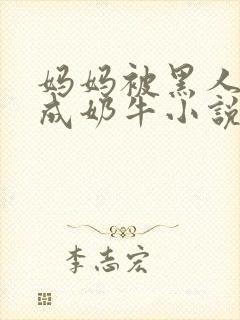 妈妈被黑人
成奶牛小說
李志宏